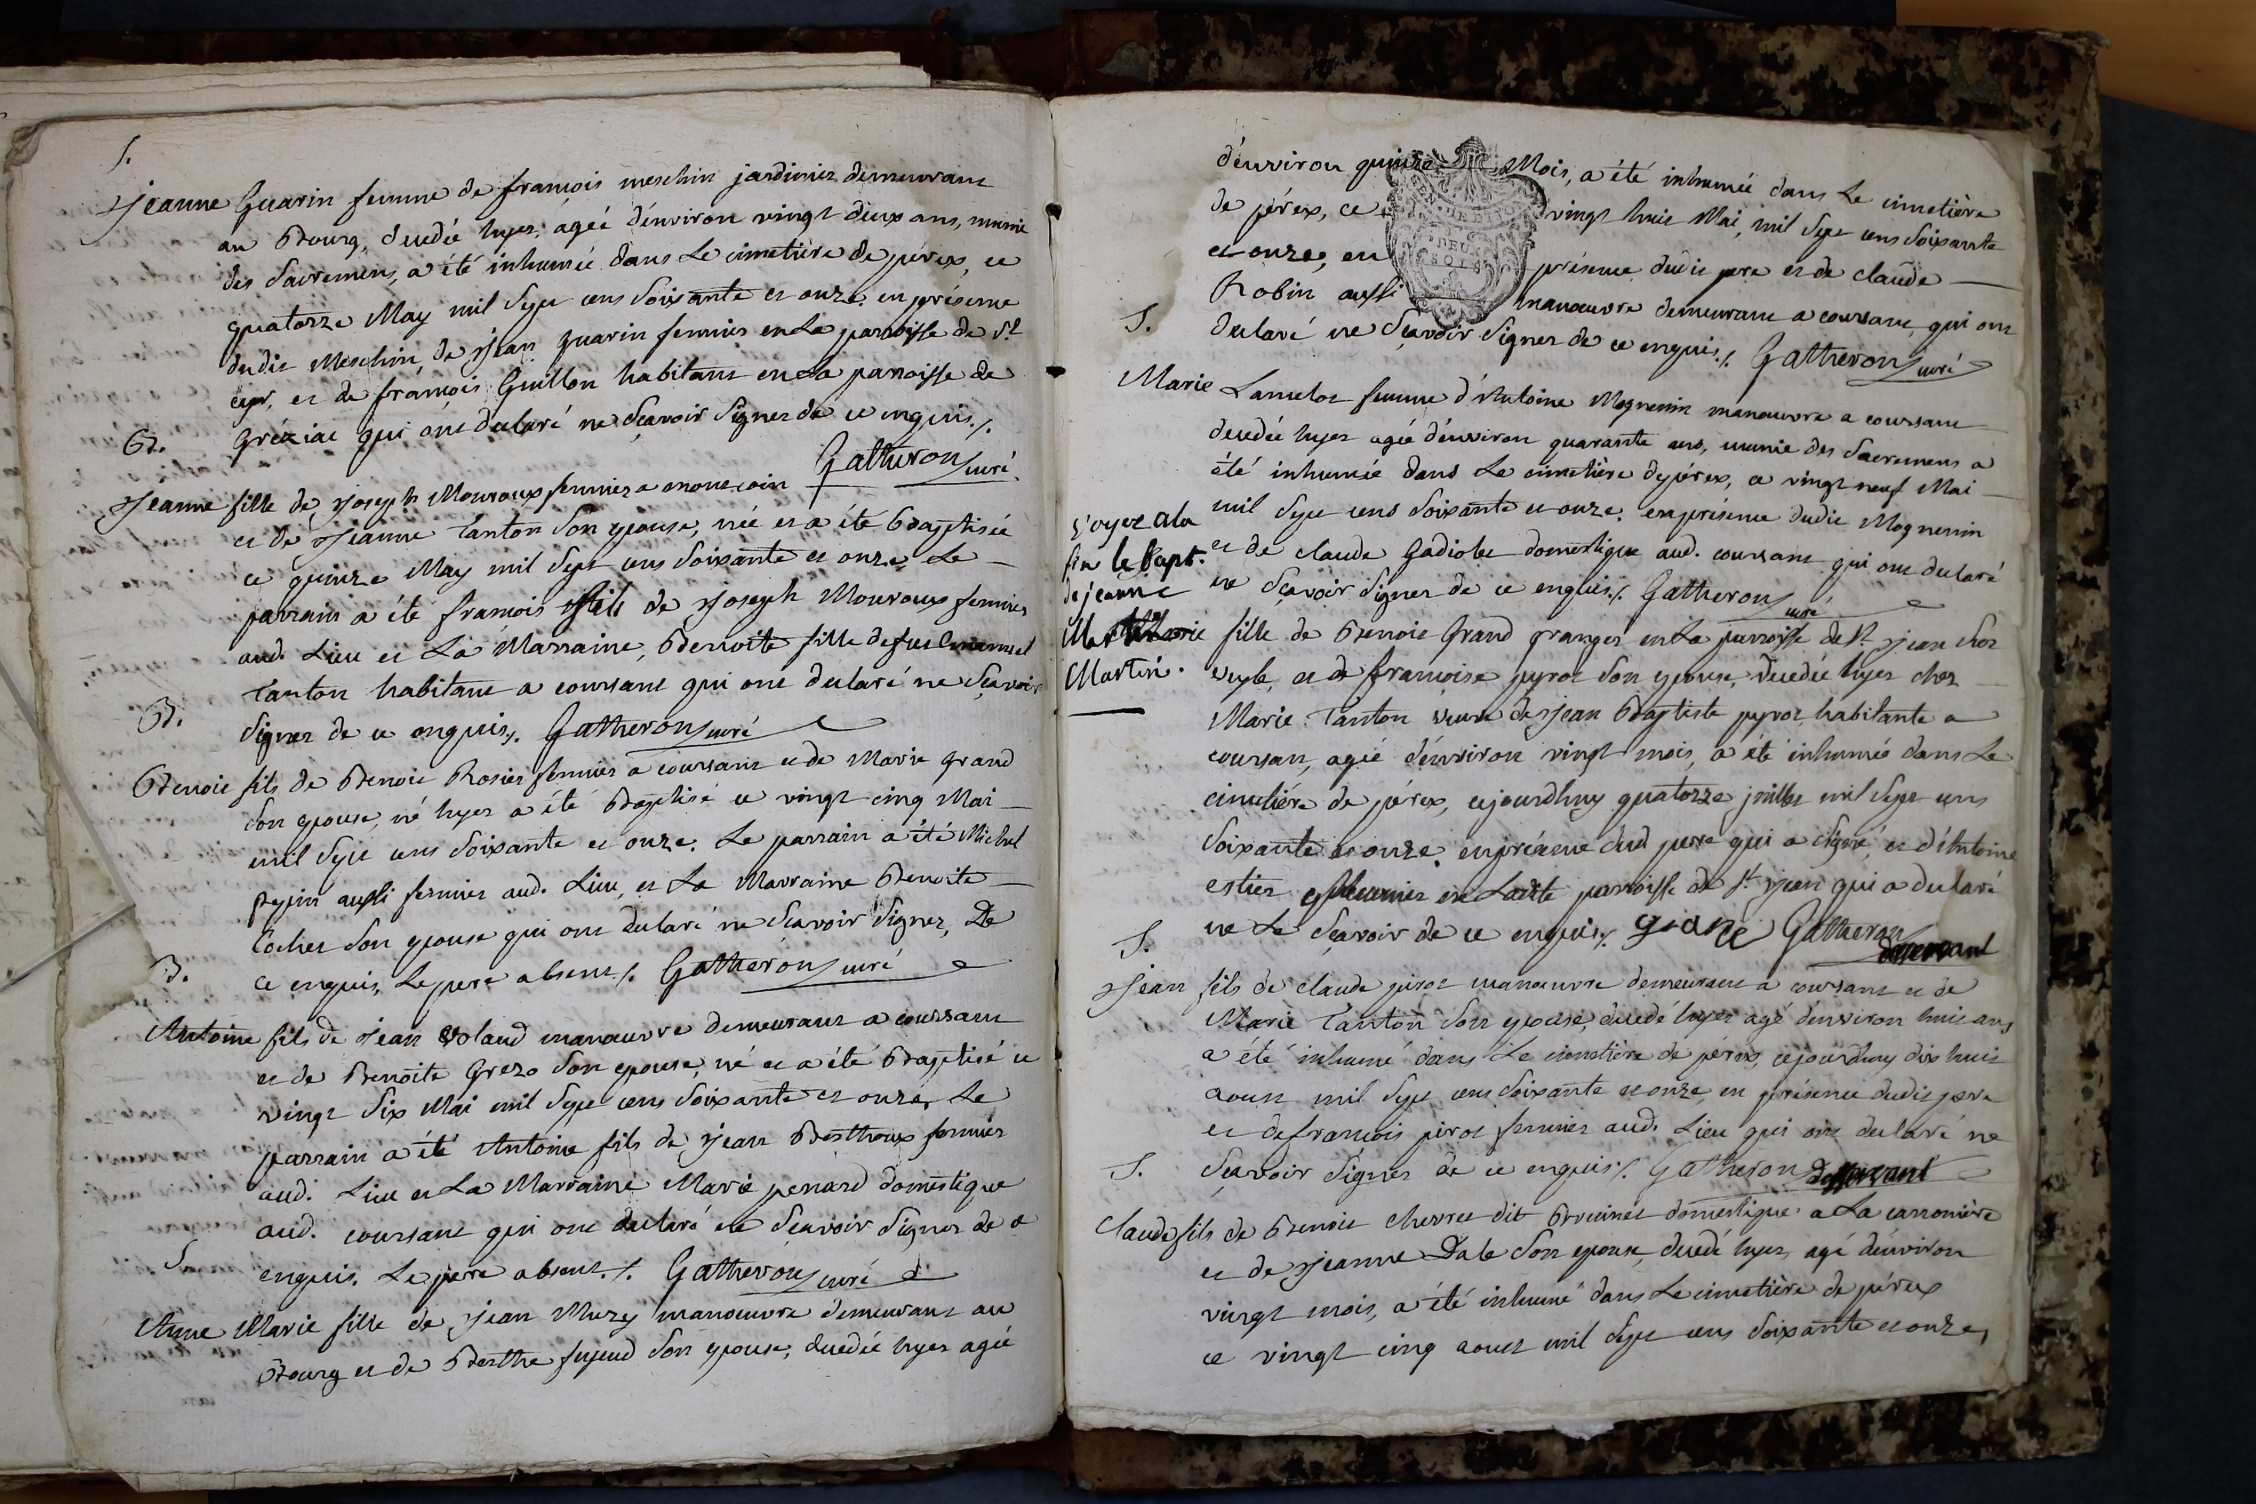 S.
Jeanne Guarin femme de françois meschin jardinier demeurant
au Bourg, decedée hyer, agéé d'énviron vingt deux ans, munie
des Sacremens, a été inhumée dans Le cimetière de pérex, ce
quatorze May mil Sept cens Soixante et onze en présence
dudit Meschin, de Jean guarin fermier en La paroisse de St
cyr, et de françois Guillon habitant en La parroisse de
Gréziac qui ont declaré ne Sçavoir Signer de ce enquis ./.
Gatheron curé
B.
Jeanne fille de Joseph Mouroux fermier a
et de Jeanne Tanton Son epouse, née et a été Baptisée
ce quinze May mil Sept cens Soixante et onze Le
parrain a été francois fils de Joseph Mouroux fermier
aud. Lieu et La Marraine, Benoite fille de feu Emanuel
Tanton habitant a coursant qui ont declaré ne Sçavoir
Signer de ce enquis ./. Gatheron curé
B.
Benoit fils de Benoit Rosier fermier a coursant et de Marie grand
Son epouse, né hyer a été Baptisé ce vingt cinq Mai
mil Sept cens Soixante et onze. Le parrain a été Michel
pepin aussi fermier aud. Lieu, et La Marraine Benoite
Cochet Son epouse qui ont declaré ne Sçavoir Signer, De
ce enquis, Le pere absent ./. Gatheron curé
B.
Antoine fils de Jean manoeuvre demeurant a coursant
et de Benoite Grezo Son epouse, né et a été Baptisé ce
vingt Six Mai mil Sept cens Soixante et onze, Le
parrain a été Antoine fils de Jean Berthoux fermier
aud. Lieu et La Marraine Marie penard domestique
aud. coursant qui ont declaré ne Sçavoir Signer de ce
enquis. Le pere absent ./. Gatheron curé
S
Anne Marie fille de Jean Muzy manoeuvre demeurant au
Bourg et de Berthe Son epouse, decedée hyer agée
d'énviron quinze Mois, a été inhumée dans Le cimetière
de pérex, ce vingt huit Mai, mil Sept cens Soixante
et onze, en présence dudit pere et de claude
Robin aussi manoeuvre demeurant a coursant, qui ont
declaré ne Sçavoir Signer de ce enquis ./. Gatheron curé
S.
Marie Lamelot femme d'Antoine Mognenin manoeuvre a coursant
decedée hyer agée d'énviron quarante ans, munie des Sacremens a
été inhumée dans Le cimetière de pérex, ce vingt neuf Mai
mil Sept cens Soixante et onze. en présence dudit Mognenin
et de claude Gadiolet domestique aud. coursant qui ont declaré
ne Sçavoir Signer de ce enquis ./. Gatheron curé
voyez a la
fin le bapt.
de jeanne
Marie
Martin.
fille de Benoit Grand granger en La parroisse de St. Jean
et de francoise pyrot Son epouse, decedée hyer chez
Marie Tanton veuve de Jean Baptiste pyrot, habitante a
coursan, agée d'énviron vingt mois, a été inhumée dans Le
cimetiére de pérex, cejourdhuy quatorze juillet mil Sept cens
Soixante et onze. en présence dud pere qui a signé, et d'Antoine
estier en Ladite parroisse de St. Jean qui a declaré
ne Le Sçavoir de ce enquis ./. grand Gatheron
desservant
S.
Jean fils de claude pirot manoeuvre demeurant a coursant et de
Marie Tanton Son epouse, decedé hyer agé d'énviron huit ans
a été inhumé dans Le cimetière de pérex, cejourdhuy dix huit
aoust mil Sept cens Soixante et onze en présence dudit pere
et de francois pirot fermier aud. Lieu qui ont declaré ne
Sçavoir Signer de ce enquis ./. Gatheron desservant
S.
Claude fils de Benoit chevret dit domestique a La carroniére
et de Jeanne Dale Son epouse, decedé hyer, agé d'énviron
vingt mois, a été inhumé dans Le cimetière de pérex
ce vingt cinq aoust mil Sept cens Soixante et onze,